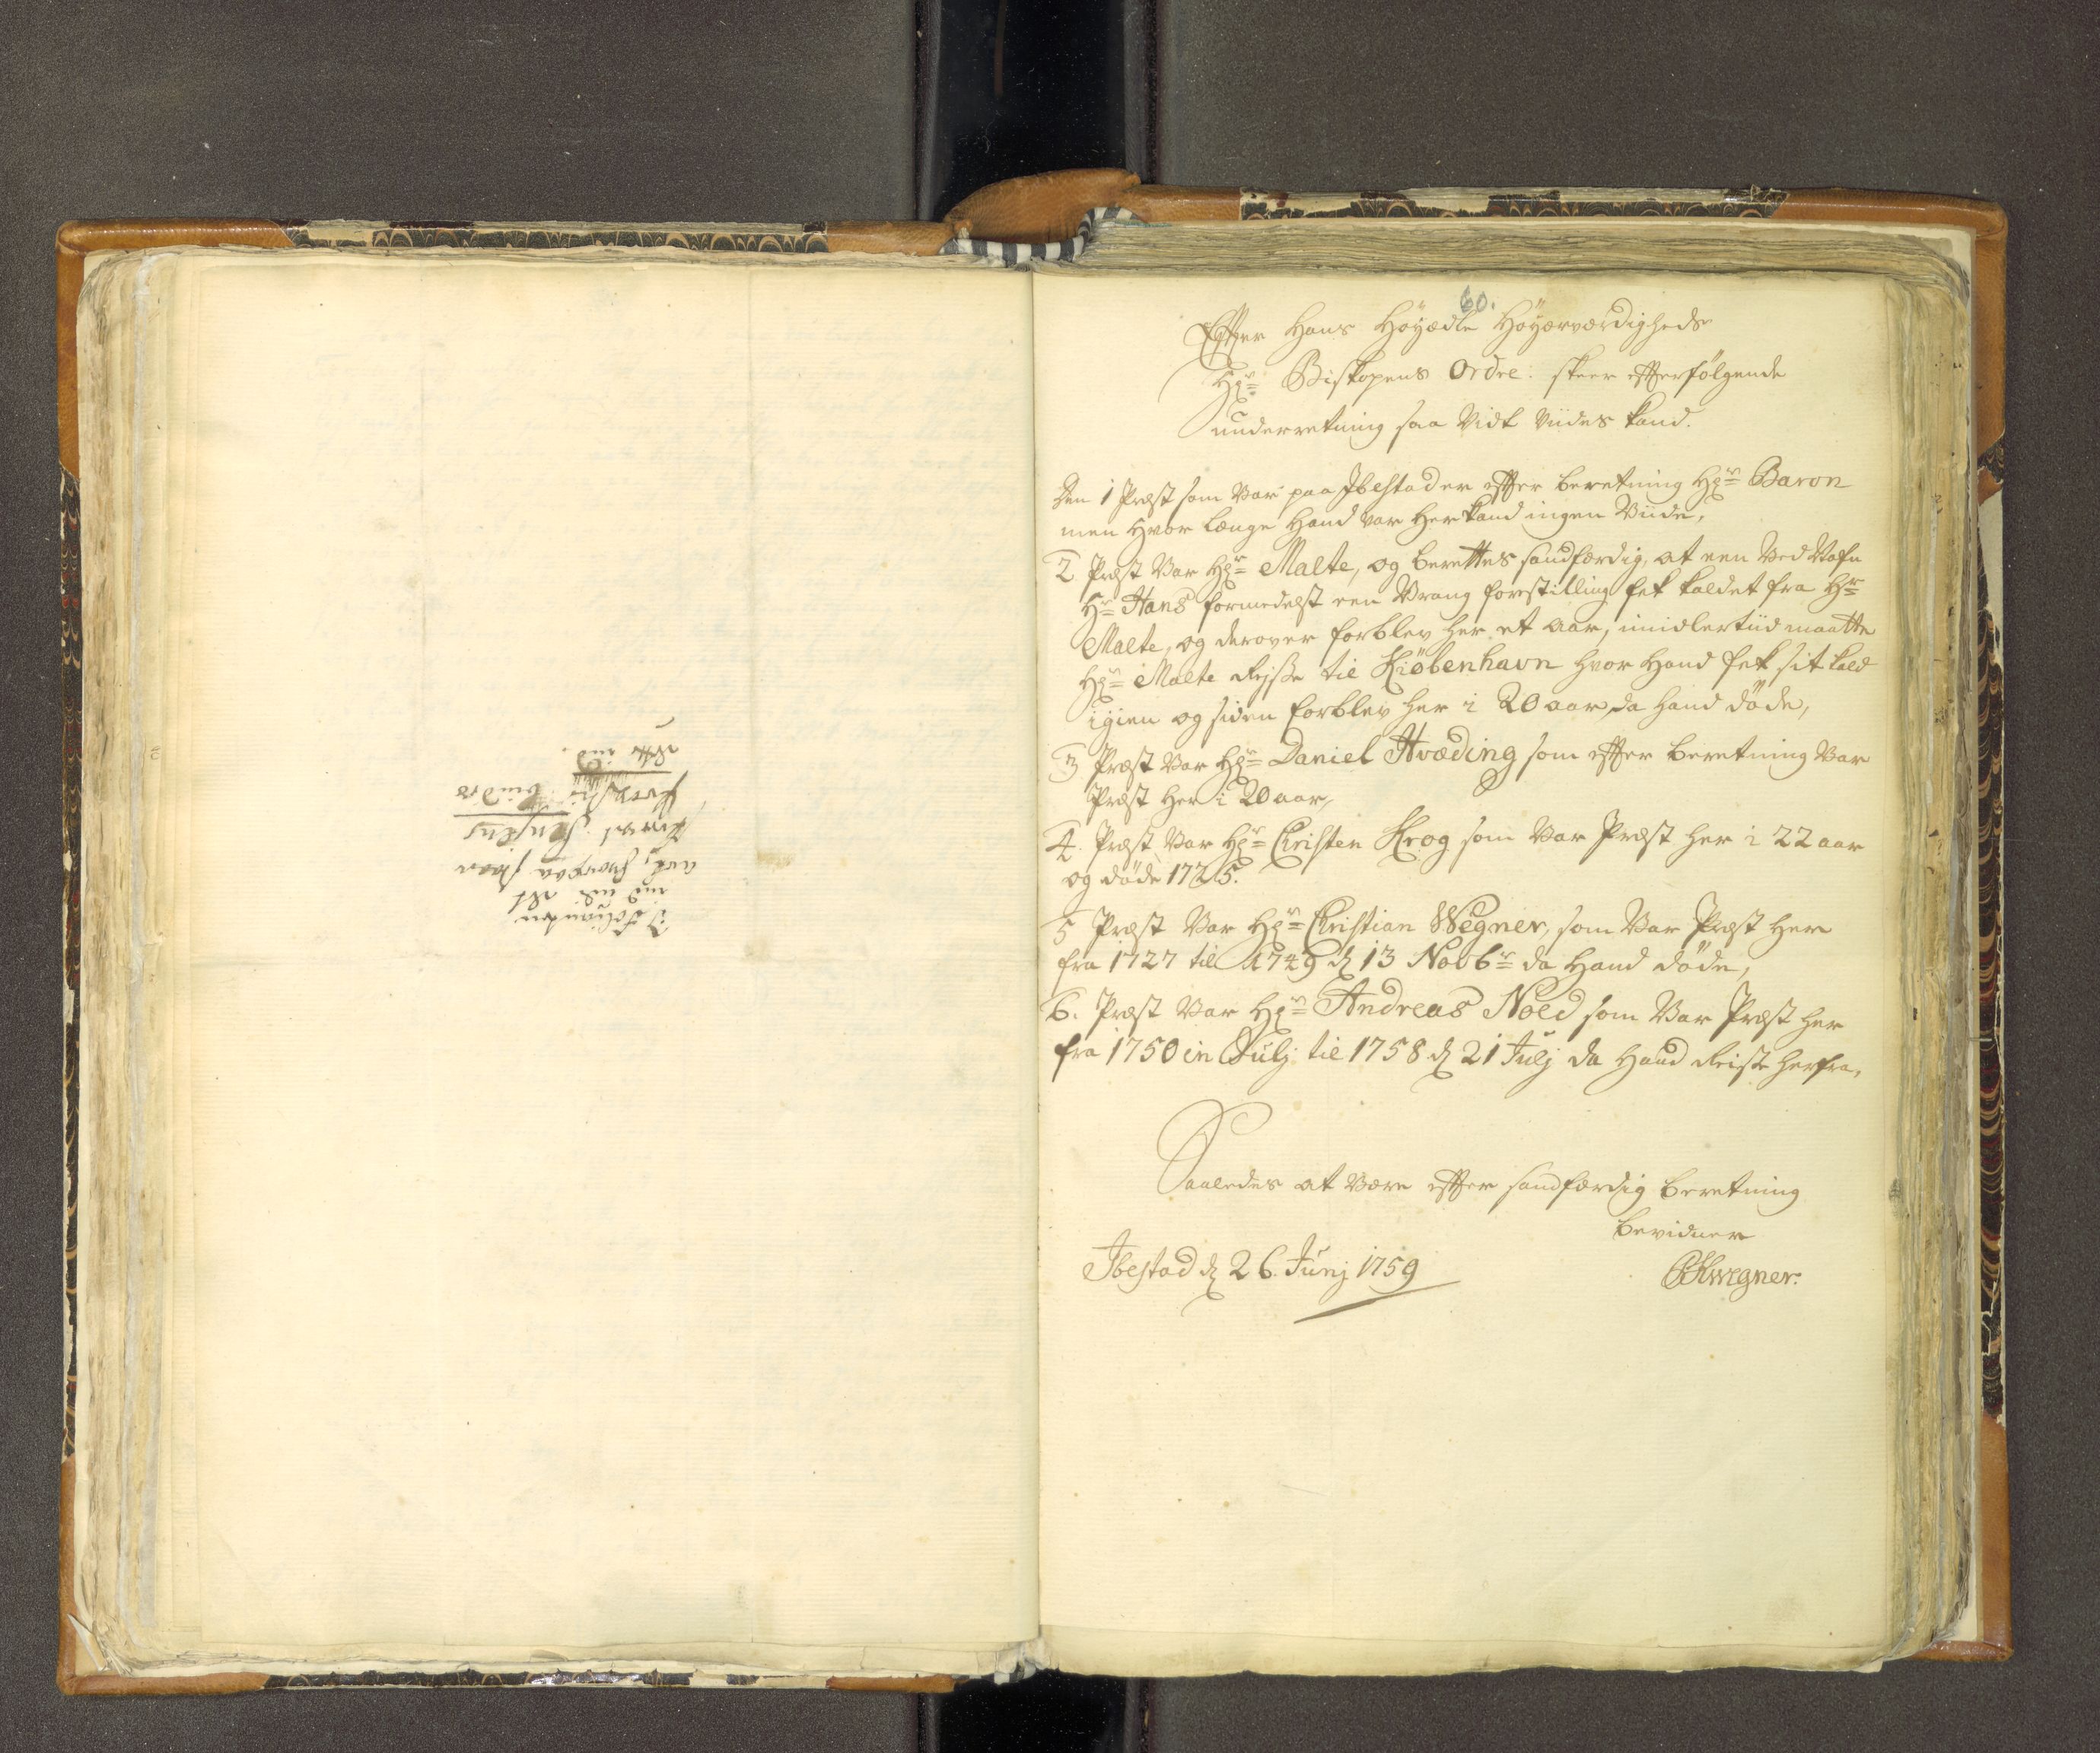 60.
Efter Hans Höyædle Höyærværdigheds
Hr Biskopens Ordre. skeer efterfølgende
underretning saa vidt viides kand.
Den 1 Præst som Var paa Ibestad er efter beretning Hr Baron
men Hvor længe Hand var her kand ingen Viide,
2 Præst Var Hr Malte, og berettes sandfærdig, at een Ved Nafn
Hr Hans formedelst een Vrang forestilling fek kaldet fra Hr
Malte, og derover forblev her et aar, imidlertiid maatte
Hr Malte Rejsse til Kiöbenhavn hvor Hand fek sit kald
igien og siden forblev her i 20 aar, da hand döde,
3 Præst Var Hr Daniel Hvæding som efter beretning Var
Præst her i 20 aar,
4. Præst Var Hr Christen Krog som Var Præst her i 22 aar
og döde 1725.
5 Præst Var Hr Christian Wegner, som Var Præst her
fra 1727 til 1749 d 13 Novbr da Hand döde,
6. Præst Var Hr Andreas Nold som Var Præst her
fra 1750 in Julj til 1758 d 21 Julj da Hand Reiste herfra,
Saaledes at være efter sandfærdig beretning
bevidner
Ibestad d 26. Junj 1759
Wegner.